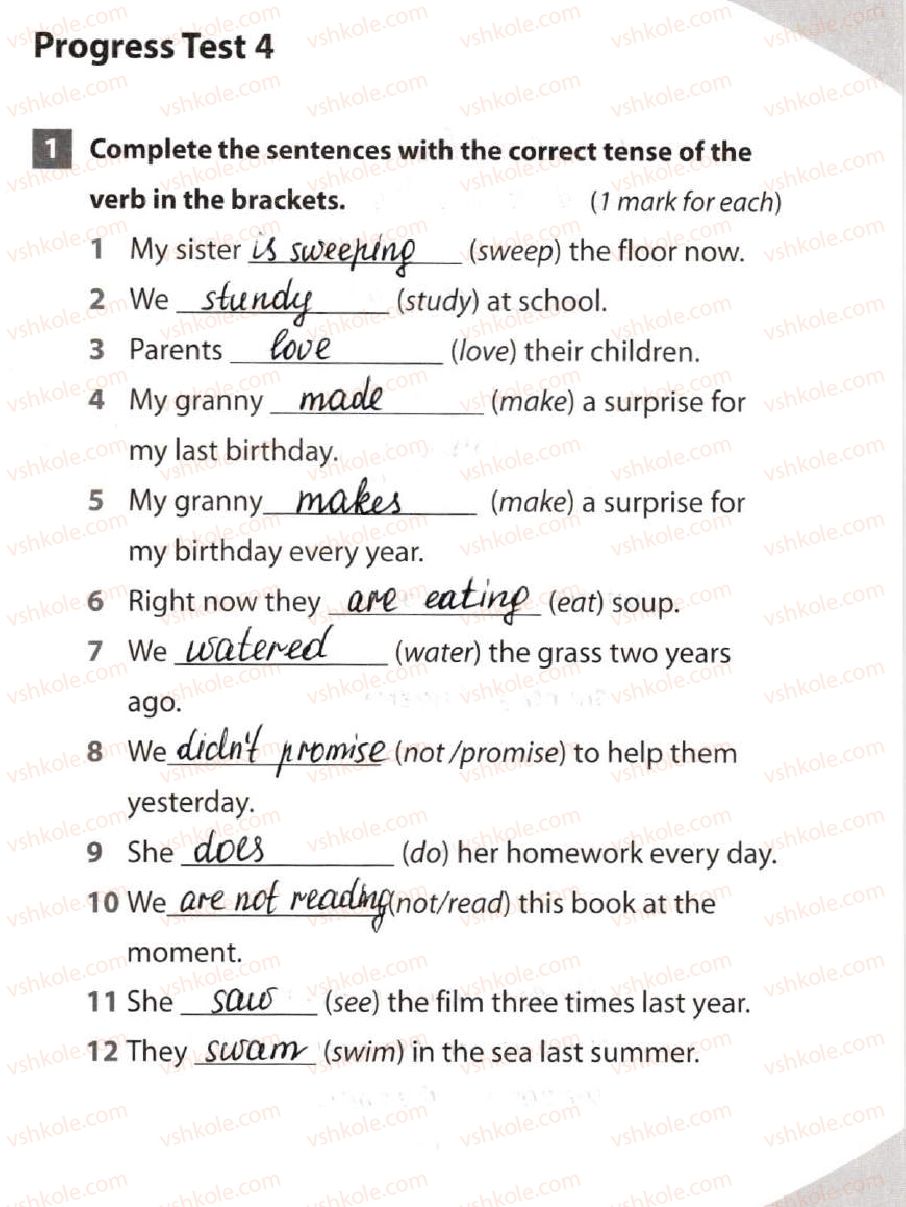 Progress Test 4
1 Complete the sentences with the correct tense of the
verb in the brackets. (1 mark for each)
1 My sister is sweeping (sweep) the floor now.
2 We stundy (study) at school.
3 Parents love (love) their children.
4 My granny made (make) a surprise for
my last birthday.
5 My granny makes (make) a surprise for
my birthday every year.
6 Right now they are eating (eat) soup.
7 We watered (water) the grass two years
ago.
8 We didn't promise (not /promise) to help them
yesterday.
9 She does (do) her homework every day.
10 We are not reading (not/read) this book at the
moment.
11 She saw (see) the film three times last year.
12 They swam (swim) in the sea last summer.
vshkole.com